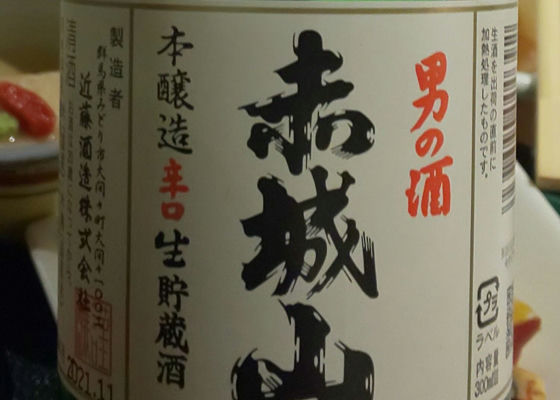 生酒を出荷の直前に
加熱処理したものです。
プラ
ラベル
内容量
300ml詰
男の酒
赤城山
本醸造辛口生貯蔵酒
製造者
群馬県みどり市大間々町大間々1002
近藤酒造株式会社
2021.11